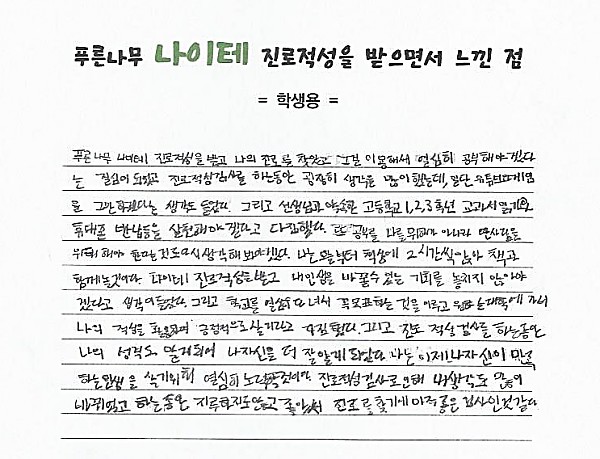 푸른나무 나이테 진로적성을 받으면서 느낀 점
= 학생용 =
푸른나무 나이테 진로적성을 받고 나의 진로를 찾았고 그걸 이용해서 열심히 공부해야겠다
는 결심이 되었고 진로적성검사를 하는동안 굉장히 생각을 많이 했는데, 일단 유튜브과게임
을 그만하겠다는 생각도 들었다. 그리고 선생님과 약속한 고등학교 1,2,3학년 교과서 읽기와
휴대폰 반납등을 실천해야겠다고 다짐했다. 또 공부를 나를 위해가 아니라
해야 한다는 것도 다시 생각해 보아야겠다. 나는 오늘부터 책상에 2시간씩 앉아 책과
함께 놀것이다 나이테 진로적성을 받고 내 인생을 바꿀수 있는 기회를 놓치지 않아야
겠다고 생각이 들었다. 그리고 학교를 열심히 다녀서 꼭 목표하는 것을 이루고 원하는 대학에 가서
나의 적성을 활용하며 긍정적으로 살기라고 다짐했다. 그리고 진로 적성 검사를 하는동안
나의 성격도 알게되어 나 자신을 더 잘 알게 되었다 나는 이제 나 자신이 만족
하는 인생을 살기위해 열심히 노력할것이며 진로적성검사로 인해 내 생각도 많이
바뀌었고 하는동안 지루하지도 않고 좋았어서 진로를 찾기에 아주 좋은 검사인것 같다